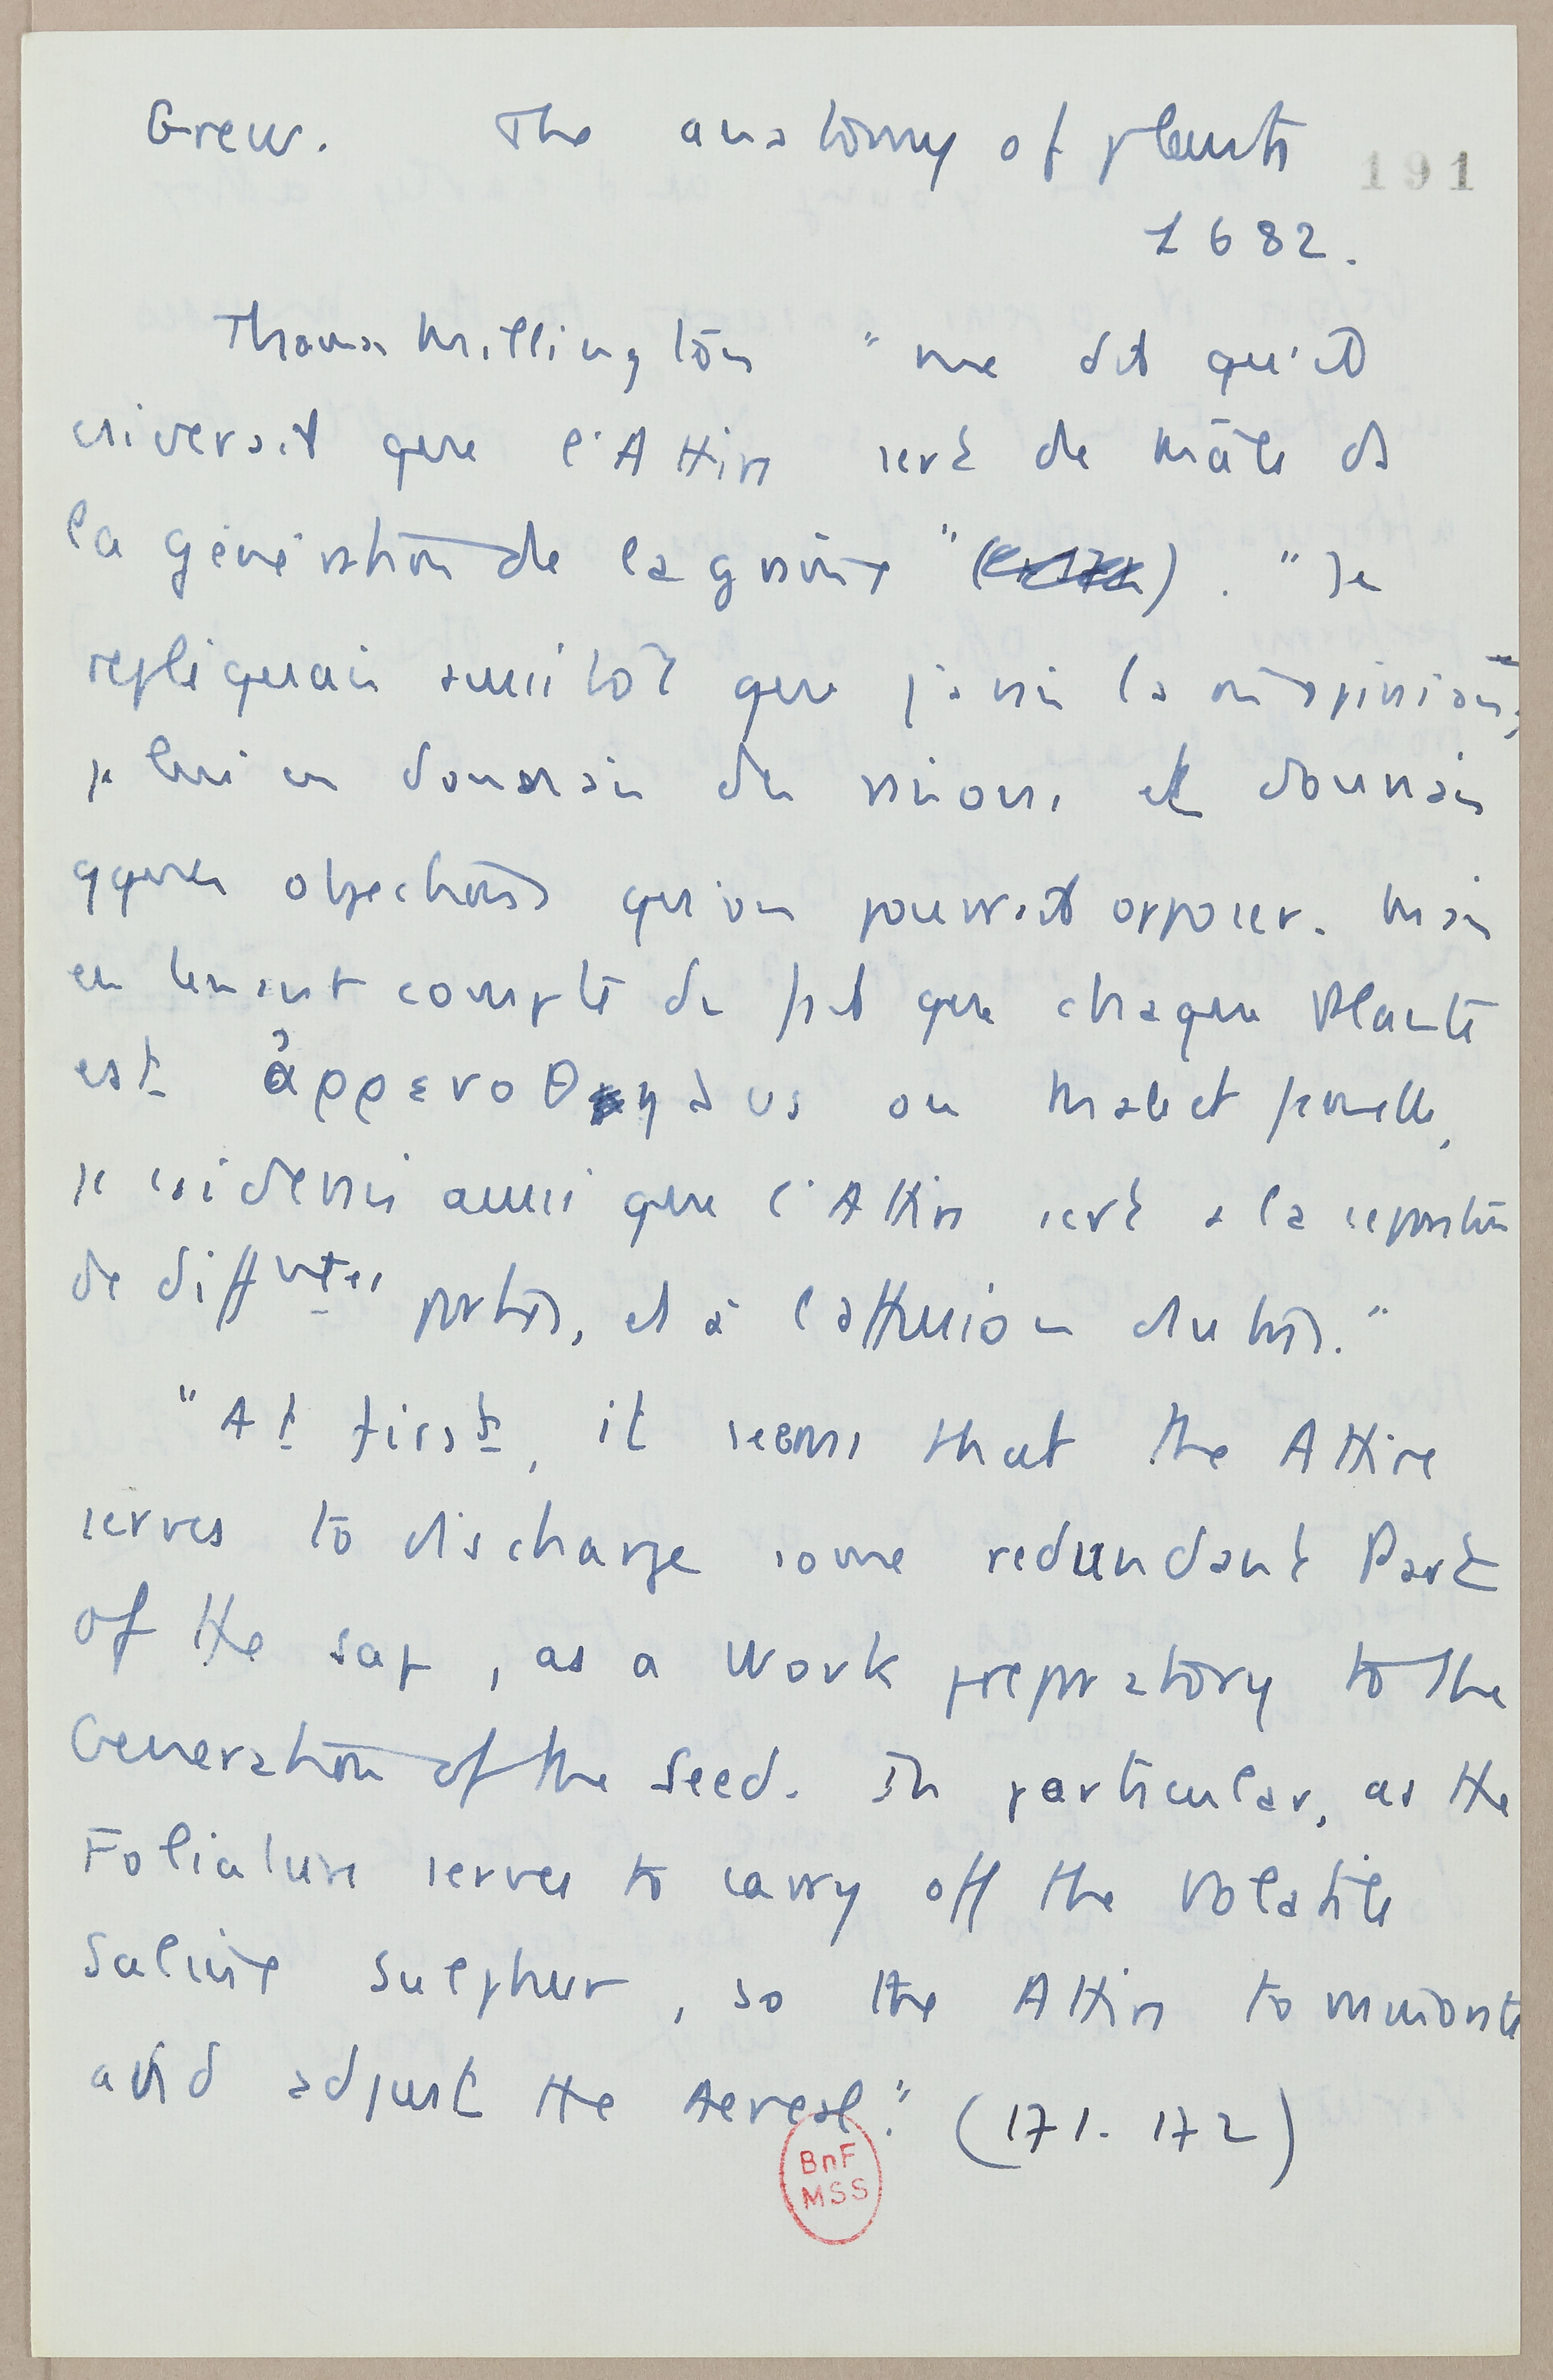 Grew. The anatomy of plants
191
1682.
Thomas Millington " me dit qu'il
croiverait que l'Attire sert de Mâle ds
la génération de la graine " ( ) . " Je
repliquais aussitôt que j'avais la même opinion;
je lui en donnais des raisons et donnais
qques objections qu'on pouvait opposer. Mais
en tenant compte du fait que chaque Plante
est ἀρρενοθηλυς ou Male et femelle,
je considérais aussi que l'Attire sert à la separation
de diffntes parties, et à l'affusion
"At first, it seems that the Attire
serves to discharge some redundant Part
of the sap, as a Work preparatory to the
Generation of the Seed. In particular, as the
Foliature serves to carry off the Volatile
Saline Sulphur, so the Attire to minorate
and adjust the Aereal." (171. 172)
BnF
MSS